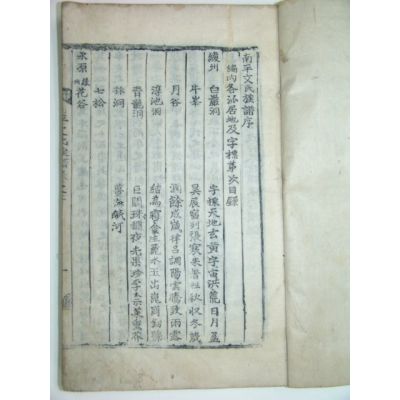 南平文氏族譜序
編內各派居地及字標第次目錄
綾州 白巖洞 字標天地玄黃宇宙洪荒日月盈
牛峯 昃辰宿列張寒來暑往秋收冬藏
月谷 閏餘成歲律呂調陽雲騰致雨露
池洞 結爲霜金生麗水玉出崑岡釰號
青龍洞 巨闕珠稱夜光果珍李柰菜重芥
洞 薑海鹹河
七松
花谷